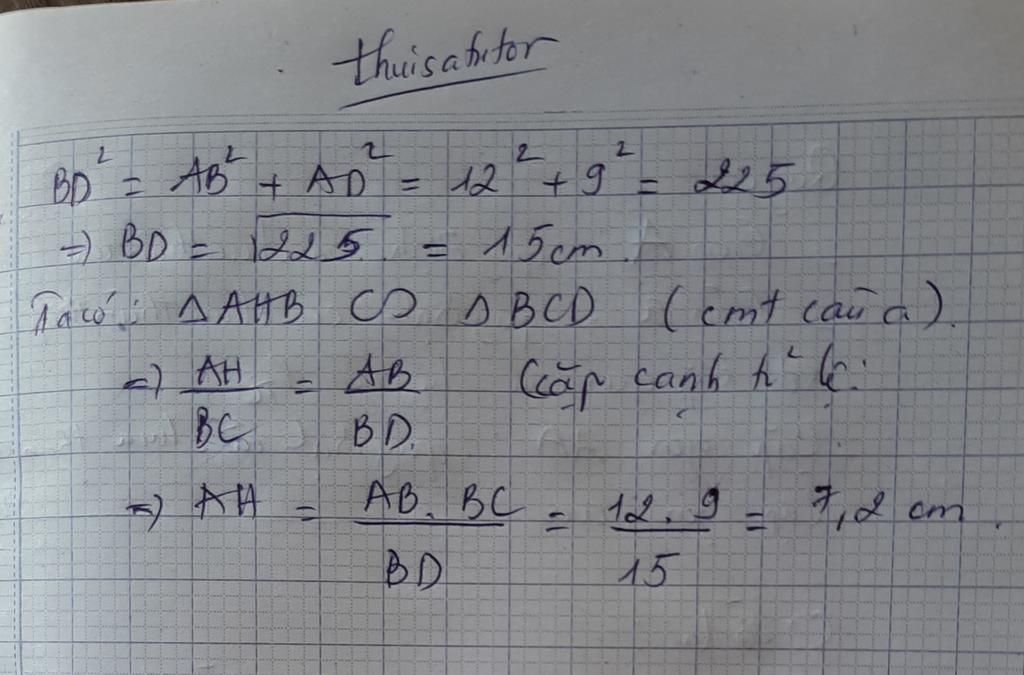 thuisatutor
BD² = AB² + AD² = 12² + 9² = 225
=> BD = √225 = 15cm.
Ta có: Δ AHB ∽ Δ BCD (cmt câu a).
=> AH/BC = AB/BD. (cặp cạnh
=> AH = AB. BC/BD = 12. 9/15 = 7,2 cm.